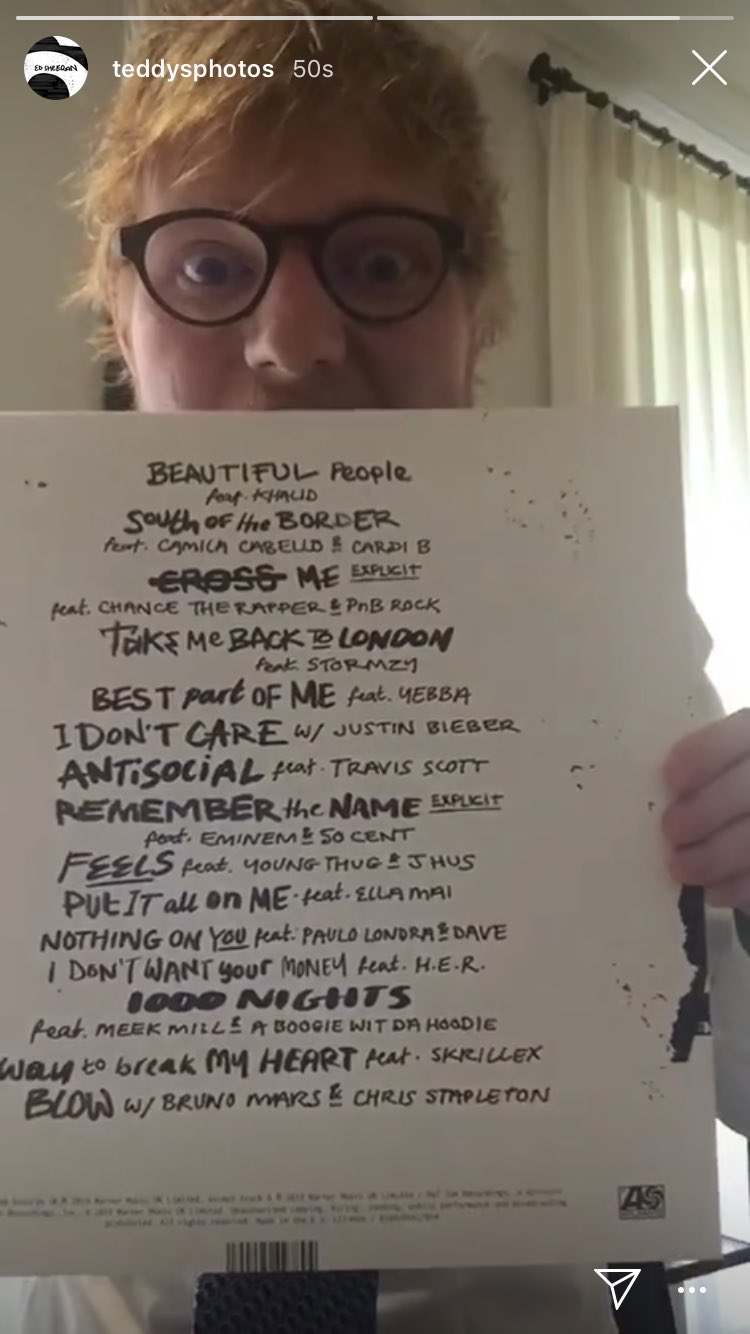 ED SHEERAN
teddysphotos 50s
BEAUTIFUL People
feat. KHALID
South OF the BORDER
feat. CAMILA CABELLO & CARDI B
CROSS ME EXPLICIT
feat. CHANCE THE RAPPER & PnB ROCK
Take Me BACK TO LONDON
feat. STORMZY
BEST part OF ME feat. YEBBA
I DON'T CARE w/ JUSTIN BIEBER
ANTiSOCiAL feat. TRAVIS SCOTT
REMEMBER the NAME EXPLICIT
feat. EMINEM & 50 CENT
FEELS feat. YOUNG THUG & J HUS
PUt IT all on ME. feat. ELLA MAI
NOTHING ON YOU feat. PAULO LONDRA & DAVE
I DON'T WANT your MONEY feat. H.E.R.
1000 NIGHTS
feat. MEEK MILL & A BOOGIE WIT DA HOODIE
way to break MY HEART feat. SKRILLEX
BLOW w/ BRUNO MARS & CHRIS STAPLETON